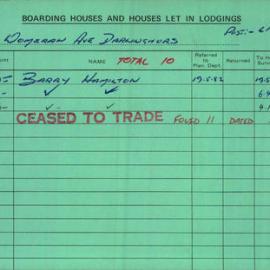 BOARDING HOUSES AND HOUSES LET IN LODGINGS
Womerah Ave Darlinghurst
NAME TOTAL 10 Referred to Plan. Dept. Returned
BARRY HAMILTON 19.5.82
CEASED TO TRADE FOLIO 11 DATED